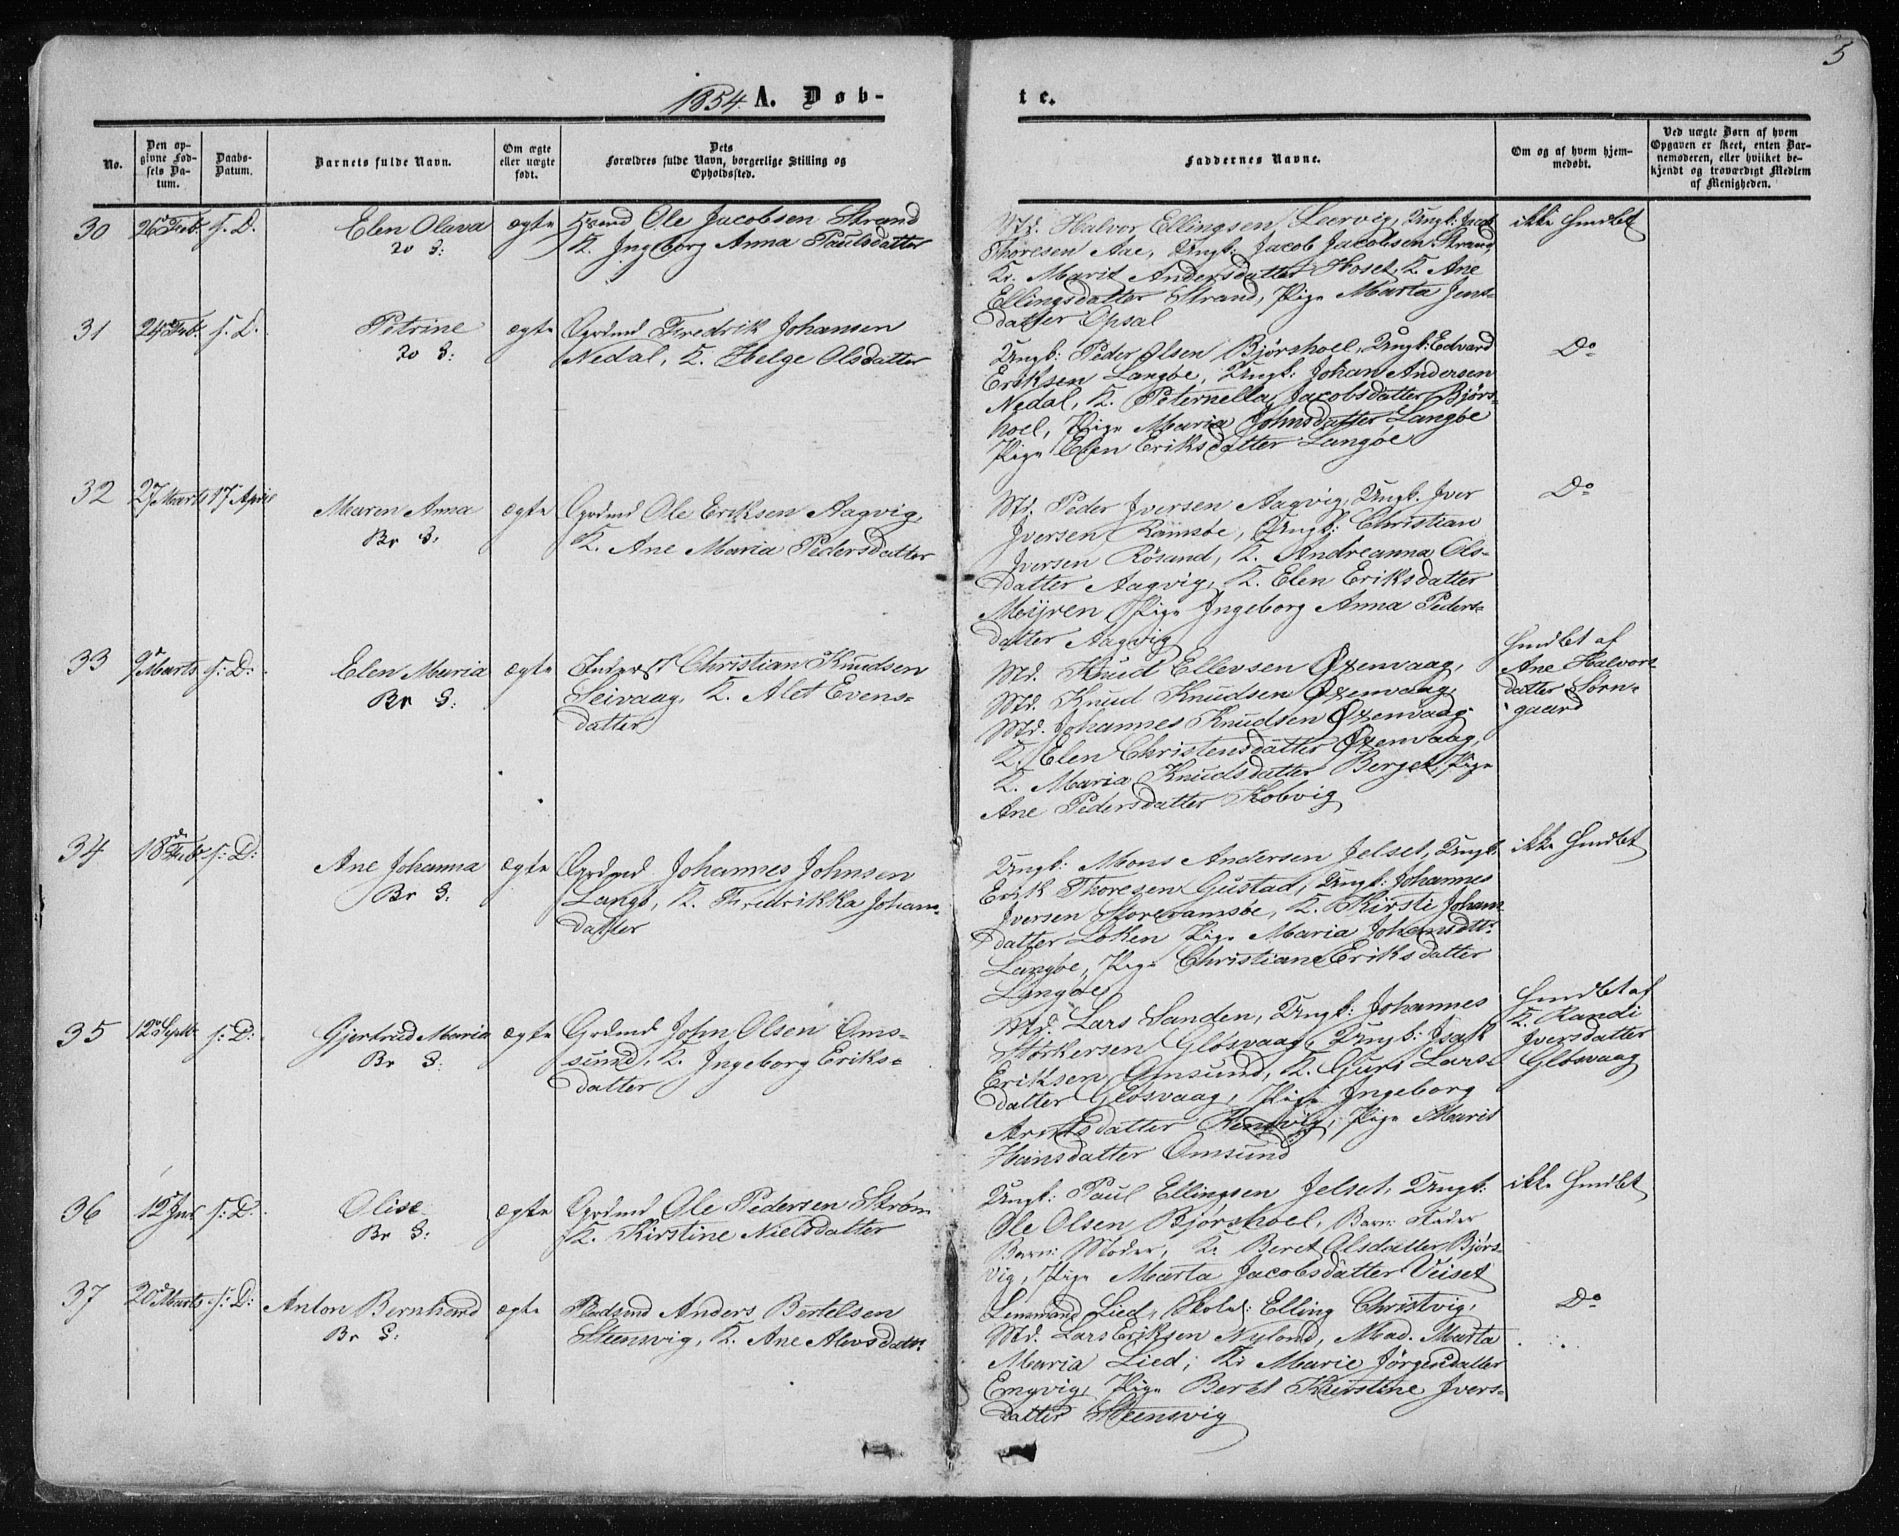 1854. A. Døb-
te.
5
No.
Den op-
givne Fød-
sels Da-
tum.
Daabs-
Datum.
Barnets fulde Navn.
Om ægte
eller uægte
født.
Dets
Forældres fulde Navn, borgerlige Stilling og
Opholdssted.
Faddernes Navne.
Om og af hvem hjem-
medøbt.
Ved uægte Børn af hvem
Opgaven er skeet, enten Bar-
nemoderen, eller hvilket be-
kjendt og troværdigt Medlem
af Menigheden.
30 26 Feb s. D. Elen Olava ægte Ole Jacobsen Strand
K. Ingeborg Anna Paulsdatter
Md. Halvor Ellingsen Lervig, Ungk: Jacob
Thoresen Aae, Ungk: Jacob Jacobsen Strand,
K. Marit Andersdatter Hoset, K. Ane
Ellingsdatter Strand, Pige Marta Jens-
datter Opsal
ikke hmdbt
31 24 Feb s. D. Petrine ægte Gprdmd Fredrik Johansen
Nedal, K. Helge Olsdatter
Ungk: Peder Olsen Bjørshoel, Ungk: Edvard
Eriksen Langøe, Ungk: Johan Andersen
Nedal, K. Peternella Jacobsdatter Bjørs-
hoel, Pige Maria Johnsdatter Langøe
Pige Elen Eriksdatter Langøe
Do
32 27 Marts 17 April Maren Anna ægte Gprdmd Ole Eriksen Aagvig,
Br S: K. Ane Maria Pedersdatter
Md. Peder Iversen Aagvig, Ungk. Iver
Iversen Ramsøe, Ungk: Christian
Iversen Røsand, K. Andreanna Ols-
datter Aagvig, K. Elen Eriksdatter
Pige Ingeborg Anna Peders-
datter Aagvig
Do
33 9 Marts s: D: Elen Maria ægte Inderst Christian Knudsen
Br S: Seivaag, K. Alet Evens-
datter
Md. Knud Ellevsen Øxenvaag,
Md. Knud Knudsen Øxenvaag,
Md. Johannes Knudsen Øxenvaag
K. Elen Christensdatter Øxenvaag,
K. Maria Knudsdatter Berget, Pige
Ane Pedersdatter Kobvig
hmdbt af
Ane Halvors-
datter Sørn-
gaard
34 18 Feb s: D: Ane Johanna ægte Gprdmd Johannes Johnsen
Br S: Langø, K. Fredrikka Johans-
datter
Ungk: Mons Andersen Jelset, Ungk:
Erik Thoresen Gustad, Ungk: Johannes
Iversen Storeramsøe, K. Kirsti Johans
datter Løken Pige Maria Johansdtr
Langøe, Pige Christiane Eriksdatter
Langøe
ikke hmdbt
35 12 Septb s: D: Gjertrud Maria ægte Grdmd John Olsen Oms-
Br S: sund, K. Ingeborg Eriks-
datter
Md. Lars Sanden, Ungk: Johannes
Størkersen Gløsvaag, Ungk: Isak
Eriksen Omsund, K. Guri Lars-
datter Gløsvaag, Pige Ingeborg
Arntsdatter Pige Marit
Hansdatter Omsund
hmdbt af
K. Randi
Iversdatter
Gløsvaag
36 12 s: D: Olise ægte Gprdmd Ole Pedersen Strøm
Br S: K. Kirstine Nielsdatter
Ungk: Paul Ellingsen Jelset, Ungk:
Ole Olsen Bjørshoel, Barn: Fader
Barn: Moder, K. Beret Olsdatter Bjørs-
vig, Pige Marta Jacobsdatter Veiset
ikke hmdbt
37 20 Marts s: D: Anton Bernhard ægte Anders Bertelsen
Br S: Steensvig, K. Ane Alevsdatr
Lensmand Lied, Skolel: Elling Christvig,
Md. Lars Eriksen Nyland, Mad. Marta
Maria Lied, K: Marie Jørgensdatter
Engvig, Pige Beret Kirstine Ivers-
datter Steensvig
Do